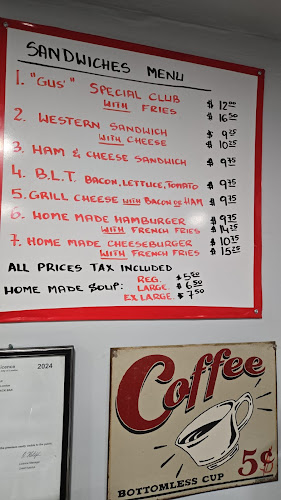 SANDWICHES MENU
1. "GUS'" SPECIAL CLUB $ 12.00
WITH FRIES $ 16.50
2. WESTERN SANDWICH $ 9.25
WITH CHEESE $ 10.25
3. HAM & CHEESE SANDWICH $ 9.75
4. B.L.T. BACON, LETTUCE, TOMATO $ 9.75
5. GRILL CHEESE WITH BACON OR HAM $ 9.75
6. HOME MADE HAMBURGER $ 9.75
WITH FRENCH FRIES $ 14.25
7. HOME MADE CHEESEBURGER $ 10.75
WITH FRENCH FRIES $ 15.25
ALL PRICES TAX INCLUDED
HOME MADE SOUP: REG. $ 5.50
LARGE. $ 6.50
EX LARGE. $ 7.50
2024
Coffee
5¢
BOTTOMLESS CUP